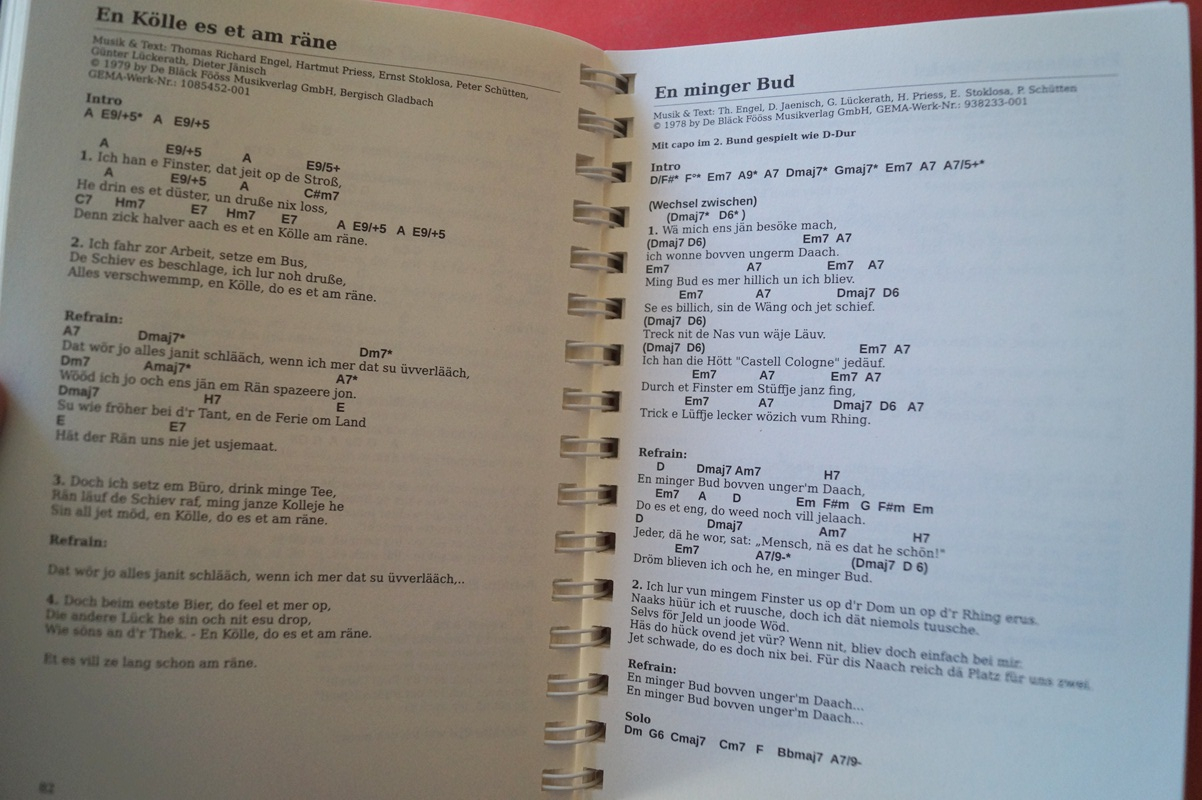 En Kölle es et am räne
Musik & Text: Thomas Richard Engel, Hartmut Priess, Ernst Stoklosa, Peter Schütten,
Günter Lückerath, Dieter Jänisch
© 1979 by De Bläck Fööss Musikverlag GmbH, Bergisch Gladbach
GEMA-Werk-Nr.: 1085452-001
Intro
A E9/+5* A E9/+5
A E9/+5 A E9/5+
1. Ich han e Finster, dat jeit op de Stroß,
A E9/+5 A C#m7
He drin es et düster, un druße nix loss,
C7 Hm7 E7 Hm7 E7 A E9/+5 A E9/+5
Denn zick halver aach es et en Kölle am räne.
2. Ich fahr zor Arbeit, setze em Bus,
De Schiev es beschlage, ich lur noh druße,
Alles verschwemmp, en Kölle, do es et am räne.
Refrain:
A7 Dmaj7* Dm7*
Dat wör jo alles janit schlääch, wenn ich mer dat su üvverlääch,
Dm7 Amaj7* A7*
Wööd ich jo och ens jän em Rän spazeere jon.
Dmaj7 H7 E
Su wie fröher bei d'r Tant, en de Ferie om Land
E E7
Hät der Rän uns nie jet usjemaat.
3. Doch ich setz em Büro, drink minge Tee,
Rän läuf de Schiev raf, ming janze Kolleje he
Sin all jet möd, en Kölle, do es et am räne.
Refrain:
Dat wör jo alles janit schlääch, wenn ich mer dat su üvverlääch,..
4. Doch beim eetste Bier, do feel et mer op,
Die andere Lück he sin och nit esu drop,
Wie söns an d'r Thek. - En Kölle, do es et am räne.
Et es vill ze lang schon am räne.
82
En minger Bud
Musik & Text: Th. Engel, D. Jaenisch, G. Lückerath, H. Priess, E. Stoklosa, P. Schütten
© 1978 by De Bläck Fööss Musikverlag GmbH, GEMA-Werk-Nr.: 938233-001
Mit capo im 2. Bund gespielt wie D-Dur
Intro
D/F#* F°* Em7 A9* A7 Dmaj7* Gmaj7* Em7 A7 A7/5+*
(Wechsel zwischen)
(Dmaj7* D6* )
1. Wä mich ens jän besöke mach,
(Dmaj7 D6) Em7 A7
ich wonne bovven ungerm Daach.
Em7 A7 Em7 A7
Ming Bud es mer hillich un ich bliev.
Em7 A7 Dmaj7 D6
Se es billich, sin de Wäng och jet schief.
(Dmaj7 D6)
Treck nit de Nas vun wäje Läuv.
(Dmaj7 D6) Em7 A7
Ich han die Hött "Castell Cologne" jedäuf.
Em7 A7 Em7 A7
Durch et Finster em Stüffje janz fing,
Em7 A7 Dmaj7 D6 A7
Trick e Lüffje lecker wözich vum Rhing.
Refrain:
D Dmaj7 Am7 H7
En minger Bud bovven unger'm Daach,
Em7 A D Em F#m G F#m Em
Do es et eng, do weed noch vill jelaach.
D Dmaj7 Am7 H7
Jeder, dä he wor, sat: „Mensch, nä es dat he schön!"
Em7 A7/9-* (Dmaj7 D 6)
Dröm blieven ich och he, en minger Bud.
2. Ich lur vun mingem Finster us op d'r Dom un op d'r Rhing erus.
Naaks hüür ich et ruusche, doch ich dät niemols tuusche.
Selvs för Jeld un joode Wöd.
Häs do hück ovend jet vür? Wenn nit, bliev doch einfach bei mir.
Jet schwade, do es doch nix bei. Für dis Naach reich dä Platz für uns zwei.
Refrain:
En minger Bud bovven unger'm Daach...
En minger Bud bovven unger'm Daach...
Solo
Dm G6 Cmaj7 Cm7 F Bbmaj7 A7/9-